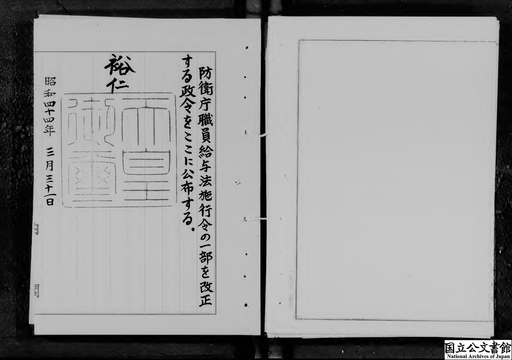 防衛庁職員給与法施行令の一部を改正
する政令をここに公布する。
裕仁
天皇
御璽
昭和四十四年 三月三十一日
国立公文書館
National Archives of Japan